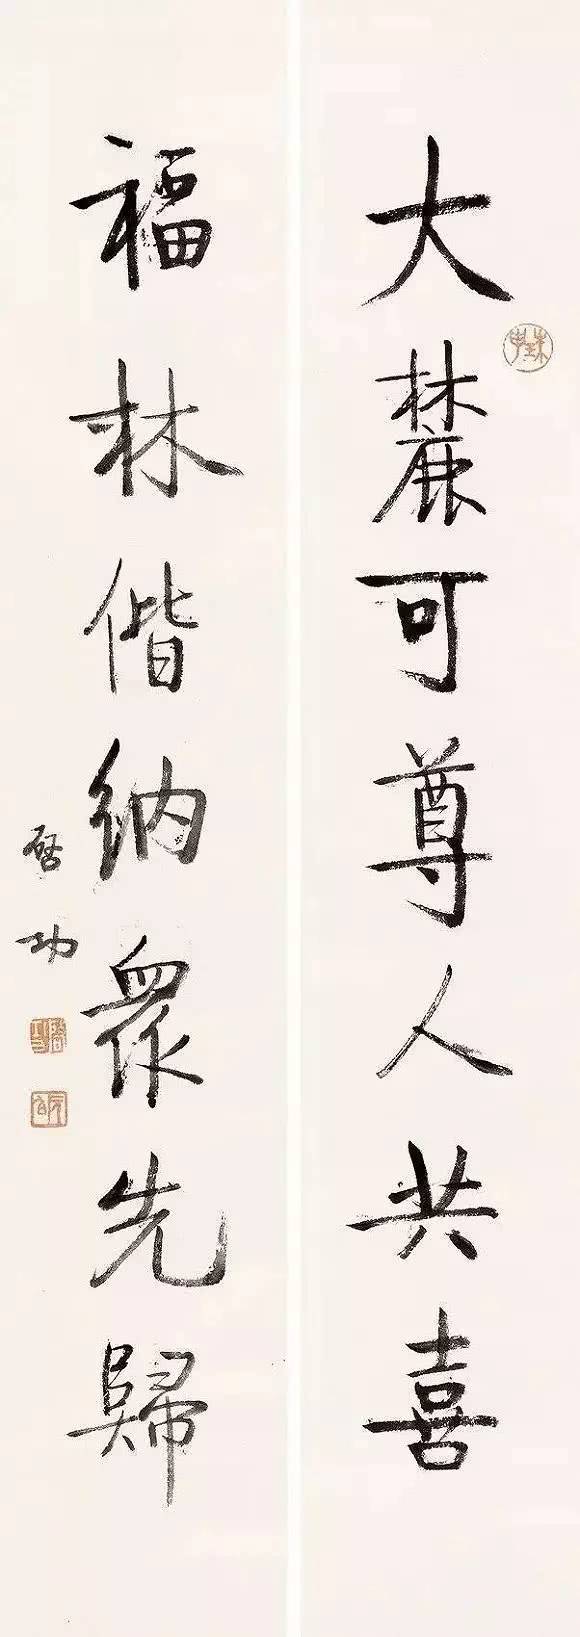 大麓可尊人共喜
福林偕納眾先歸
啓功